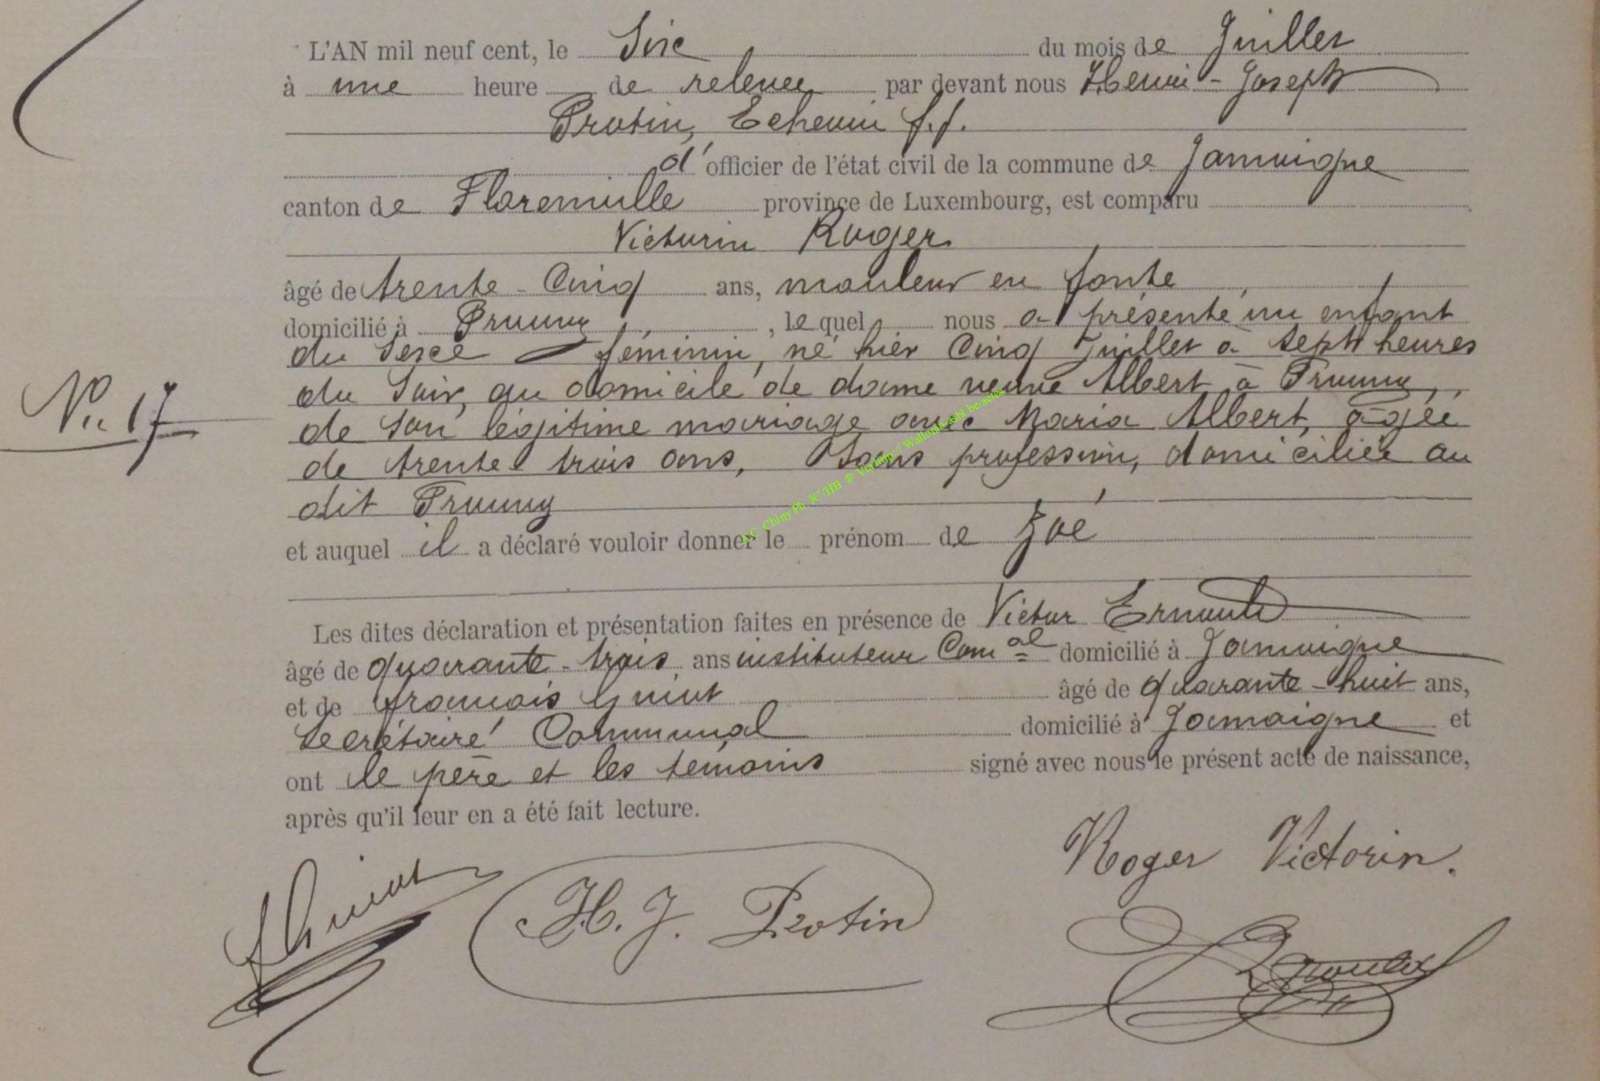 L'AN mil neuf cent, le Six du mois de Juillet
à une heure de relevée par devant nous Henri-Joseph
Protin, Echevin f.f.
d'officier de l'état civil de la commune de Jamoigne
canton de Florenville province de Luxembourg, est comparu
Victorin Roger
âgé de trente-Cinq ans, mouleur en fonte
domicilié à Prouvy, lequel nous a présenté un enfant
du Sexe féminin, né hier Cinq Juillet à Sept heures
du Soir, au domicile de dame veuve Albert à Prouvy,
de Son légitime mariage avec Maria Albert, agée
de trente trois ans, Sans profession, domiciliée au
dit Prouvy
et auquel il a déclaré vouloir donner le prénom de Zoé
Les dites déclaration et présentation faites en présence de Victor Ernould
âgé de quarante-trois ans instituteur Comal domicilié à Jamoigne
et de françois Guiot âgé de quarante-huit ans,
Secrétaire Communal domicilié à Jamoigne et
ont le père et les témoins signé avec nous le présent acte de naissance,
après qu'il leur en a été fait lecture.
No 17
Roger Victorin.
F Guiot
H. J. Protin
Ernould